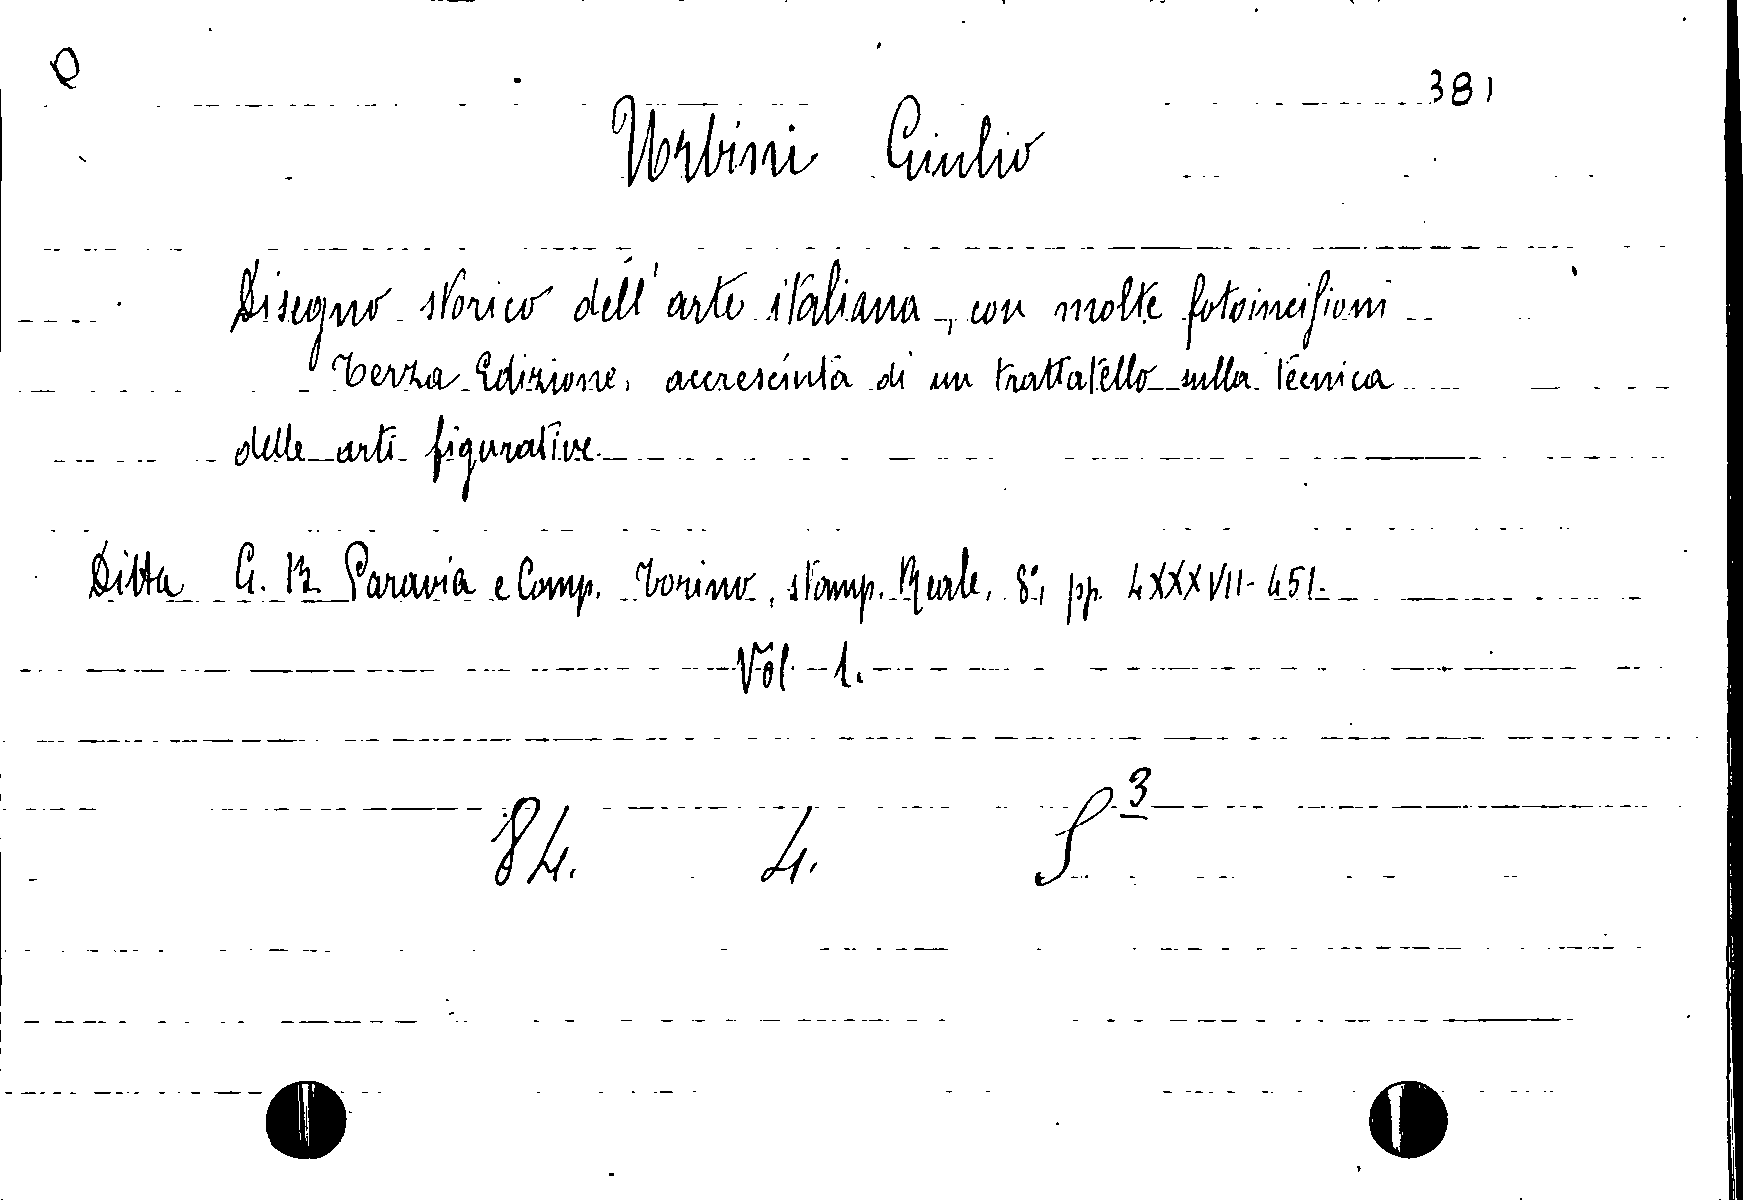 Q
381
Urbini Giulio
Disegno storico dell'arte italiana, con molte fotoincisioni
Terza Edizione, accresciuta di un trattatello sulla tecnica
delle arti figurative.
Ditta G. B. Paravia e Comp. Torino, stamp. Reale, 8°, pp. LXXXVII-451.
Vol. 1.
84. 4. S 3